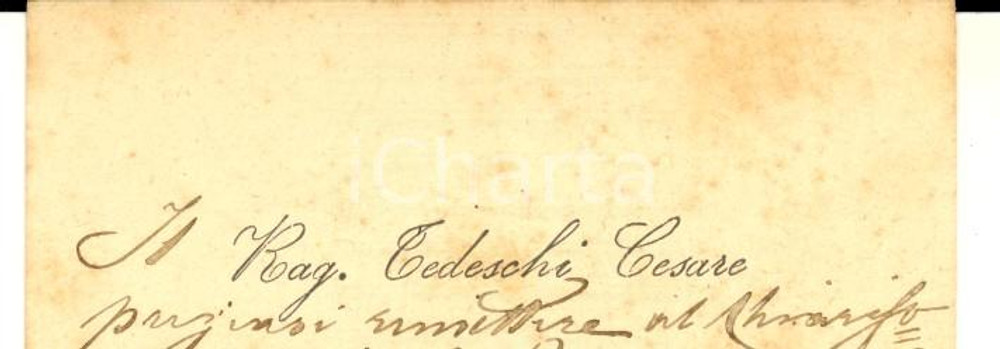 iCharta
Il Rag. Tedeschi Cesare
pregiasi rimettere al Chiariss⁰